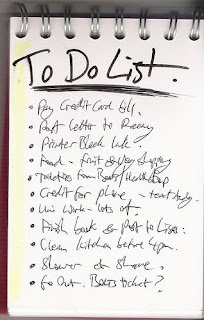 To Do List.
• Pay Credit Card bill.
• Post letter to
• Printer Black Ink
• Food - fruit & veg shopping
• Toiletries from Boots/
• Credit for phone - text
• Uni Work - lots of.
• Finish book & Post to Lissa.
• Clean kitchen before 4pm.
• Shower & Shave.
• Go Out. ticket?